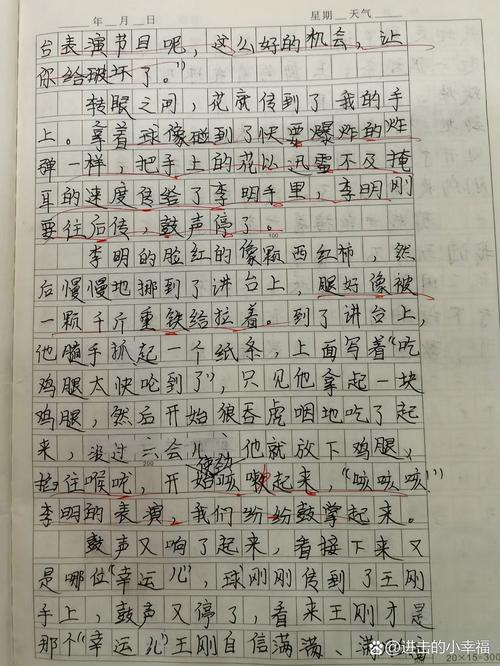 年 月 日 星期 天气
台表演节目呢，这么好的机会，让
你给破坏了。”
转眼之间，花就传到了我的手
上。拿着球像碰到了快要爆炸的炸
弹一样，把手上的花以迅雷不及掩
耳的速度传给了李明手里，李明刚
要往后传，鼓声停了。
100
李明的脸红的像颗西红柿，然
后慢慢地挪到了讲台上，腿好像被
一颗千斤重铁给拉着。到了讲台上，
他随手抓起一个纸条，上面写着“吃
鸡腿大快呛到了”，只见他拿起一块
鸡腿，然后开始狼吞虎咽地吃了起
来，没过一会儿，他就放下鸡腿，
200
掐住喉咙，开始使劲咳嗽起来，“咳咳咳！”
李明的表演，我们纷纷鼓掌起来。
鼓声又响了起来，看接下来又
是哪位“幸运儿”，球刚刚传到了王刚
手上，鼓声又停了，看来王刚才是
那个“幸运儿”王刚自信满满、满
20×15=300
@进击的小幸福